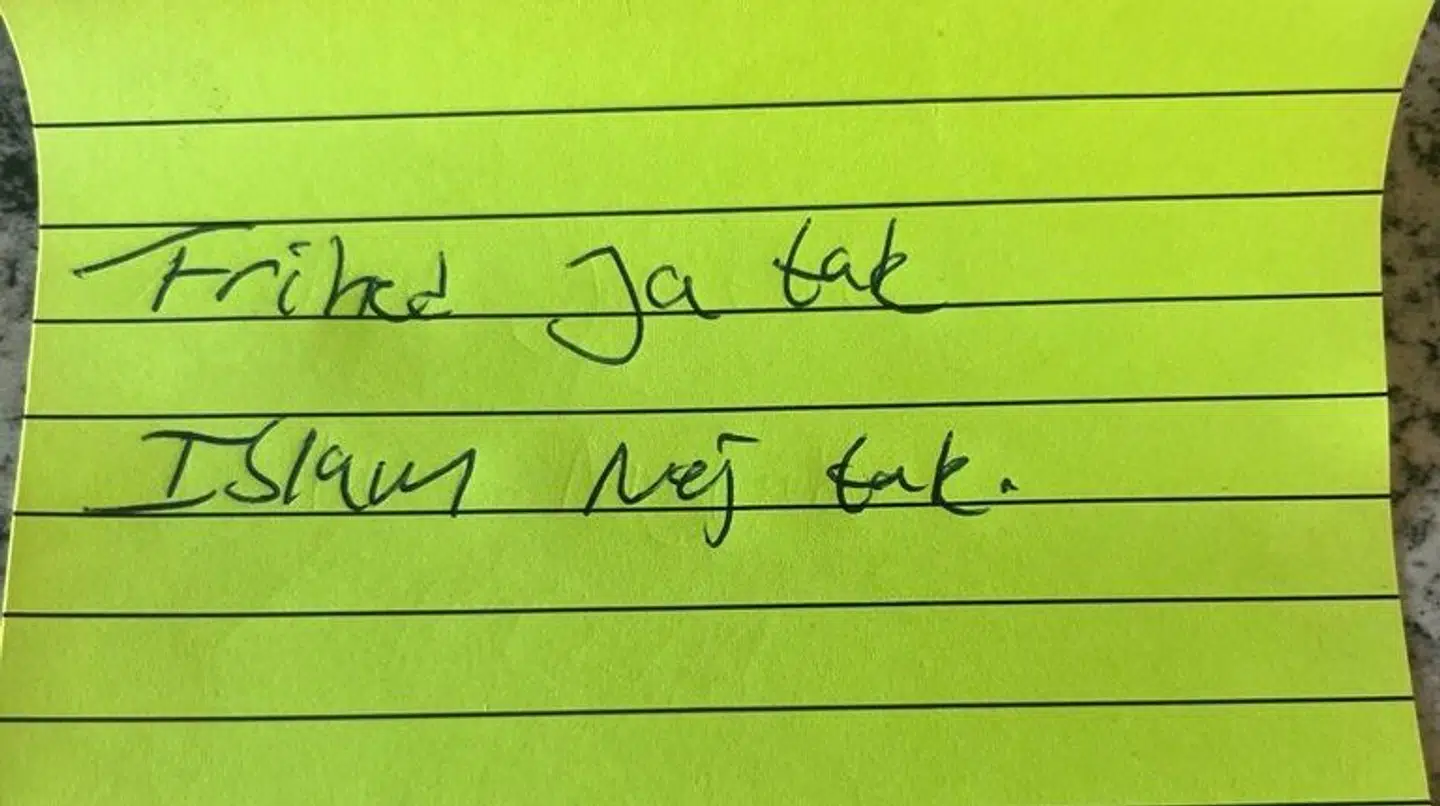 Frihed Ja tak
Islam Nej tak.